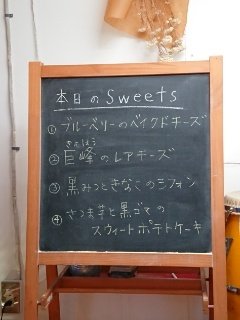 本日のSweets
① ブルーベリーのベイクドチーズ
きょほう
② 巨峰のレアチーズ
③ 黒みつときなこのシフォン
④ さつま芋と黒ゴマの
スウィートポテトケーキ